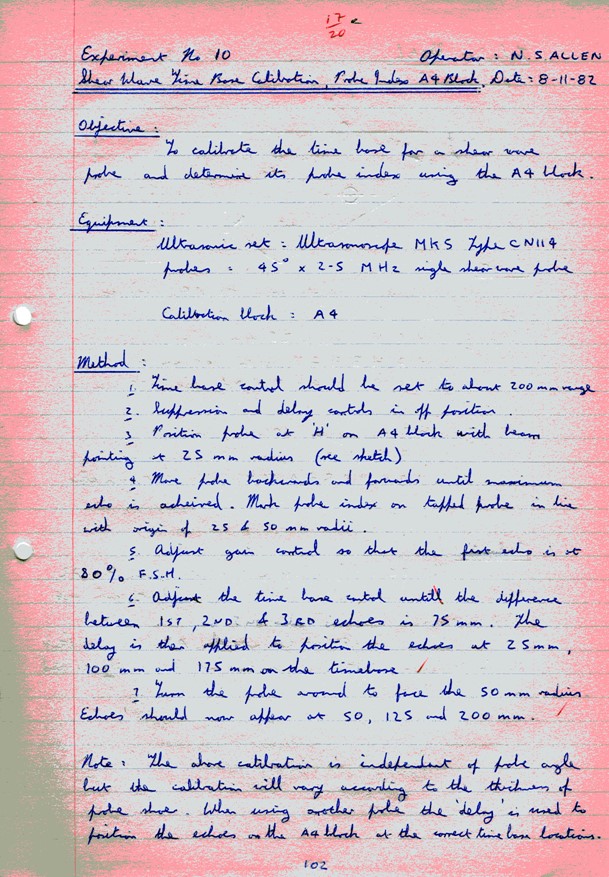 17
20
Experiment No 10 Operator : N.S.ALLEN
Shear Wave Time Base Calibration, Probe Index A4 Block, Date : 8-11-82
Objective :
To calibrate the time base for a shear wave
probe and determine its probe index using the A4 block.
Equipment :
Ultrasonic set : Ultrasonoscope MKS Type CN114
probes : 45° x 2-5 MHz single shear wave probe
Calibration block : A4
Method :
1. Time base control should be set to about 200 mm range
2. Suppression and delay controls in off position.
3 Position probe at 'H' on A4 block with beam
pointing at 25 mm radius (see sketch)
4 Move probe backwards and forwards until maximum
echo is acheived. Mark probe index on tapped probe in line
with origin of 25 & 50 mm radii.
5. Adjust gain control so that the first echo is at
80% F.S.H.
6. Adjust the time base control untill the difference
between 1ST, 2ND & 3RD echoes is 75 mm. The
delay is then applied to position the echoes at 25mm,
100 mm and 175 mm on the timebase
7 Turn the probe around to face the 50 mm radius
Echoes should now appear at 50, 125 and 200 mm.
Note : The above calibration is independent of probe angle
but the calibration will vary according to the thickness of
probe shoe. When using another probe the 'delay' is used to
position the echoes on the A4 block at the correct time base locations.
102